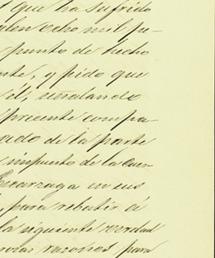 que ha sufrido
ocho mil pe-
punto de hecho
nte, y pido que
el, señalando
presente compa-
ado de la parte
impuesto de la Cuen
Ecarzaga en sus
para rebatir á
la siguiente verdad
varias razones para